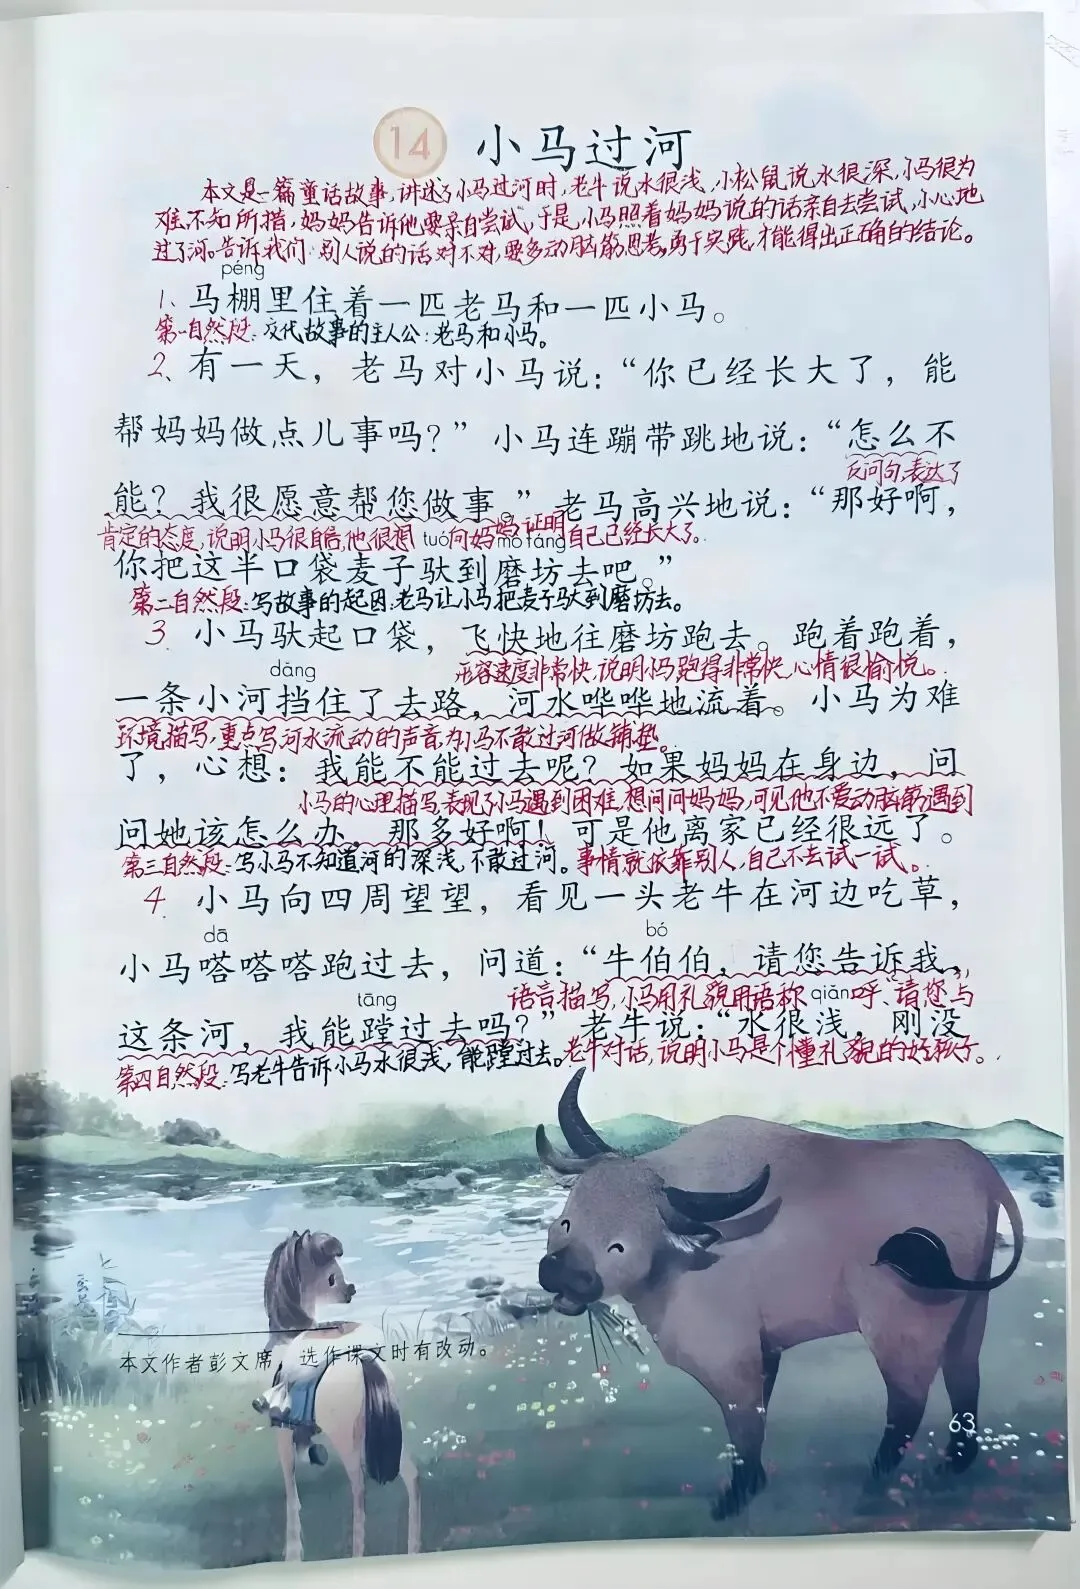 14 小马过河
本文是一篇童话故事,讲述了小马过河时,老牛说水很浅,小松鼠说水很深,小马很为
难,不知所措,妈妈告诉他要亲自尝试,于是,小马照着妈妈说的话亲自去尝试,小心地
过了河。告诉我们:别人说的话对不对,要多动脑筋思考,勇于实践,才能得出正确的结论。
péng
1、马棚里住着一匹老马和一匹小马。
第一自然段:交代故事的主人公:老马和小马。
2、有一天，老马对小马说：“你已经长大了，能
帮妈妈做点儿事吗？”小马连蹦带跳地说：“怎么不
反问句,表达了
能？我很愿意帮您做事。”老马高兴地说：“那好啊，
肯定的态度,说明小马很自信,他很想向妈妈证明自己已经长大了。
tuó mò fáng
你把这半口袋麦子驮到磨坊去吧。”
第二自然段:写故事的起因:老马让小马把麦子驮到磨坊去。
3、小马驮起口袋，飞快地往磨坊跑去。跑着跑着，
dǎng
形容速度非常快,说明小马跑得非常快,心情很愉悦。
一条小河挡住了去路，河水哗哗地流着。小马为难
环境描写,重点写河水流动的声音,为小马不敢过河做铺垫。
了，心想：我能不能过去呢？如果妈妈在身边，问
小马的心理描写,表现了小马遇到困难,想问问妈妈,可见他不爱动脑筋,遇到
问她该怎么办，那多好啊！可是他离家已经很远了。
第三自然段:写小马不知道河的深浅,不敢过河。事情就依靠别人,自己不去试一试。
4、小马向四周望望，看见一头老牛在河边吃草，
dā bó
小马嗒嗒嗒跑过去，问道：“牛伯伯，请您告诉我，
tāng qiǎn
语言描写,小马用礼貌用语称呼、“请您”与
这条河，我能蹚过去吗？”老牛说：“水很浅，刚没
第四自然段:写老牛告诉小马水很浅,能蹚过去。老牛对话,说明小马是个懂礼貌的好孩子。
本文作者彭文席，选作课文时有改动。
63